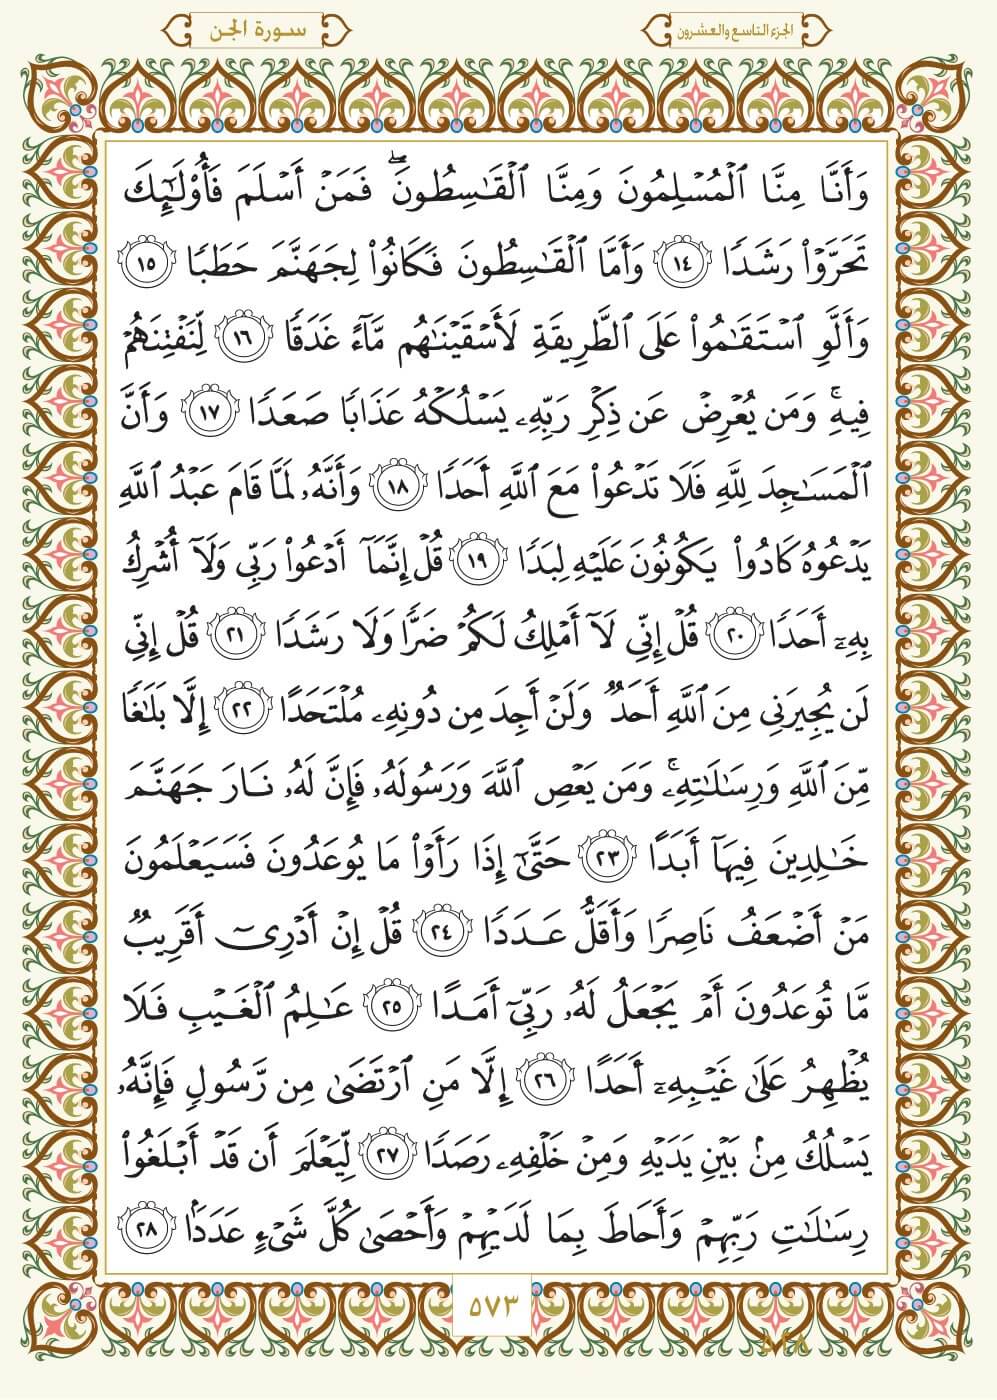 الجزء التاسع والعشرون
سورة الجن
وَأَنَّا مِنَّا ٱلۡمُسۡلِمُونَ وَمِنَّا ٱلۡقَٰسِطُونَۖ فَمَنۡ أَسۡلَمَ فَأُوْلَٰٓئِكَ
تَحَرَّوۡاْ رَشَدٗا ١٤ وَأَمَّا ٱلۡقَٰسِطُونَ فَكَانُواْ لِجَهَنَّمَ حَطَبٗا ١٥
وَأَلَّوِ ٱسۡتَقَٰمُواْ عَلَى ٱلطَّرِيقَةِ لَأَسۡقَيۡنَٰهُم مَّآءً غَدَقٗا ١٦ لِّنَفۡتِنَهُمۡ
فِيهِۚ وَمَن يُعۡرِضۡ عَن ذِكۡرِ رَبِّهِۦ يَسۡلُكۡهُ عَذَابٗا صَعَدٗا ١٧ وَأَنَّ
ٱلۡمَسَٰجِدَ لِلَّهِ فَلَا تَدۡعُواْ مَعَ ٱللَّهِ أَحَدٗا ١٨ وَأَنَّهُۥ لَمَّا قَامَ عَبۡدُ ٱللَّهِ
يَدۡعُوهُ كَادُواْ يَكُونُونَ عَلَيۡهِ لِبَدٗا ١٩ قُلۡ إِنَّمَآ أَدۡعُواْ رَبِّي وَلَآ أُشۡرِكُ
بِهِۦٓ أَحَدٗا ٢٠ قُلۡ إِنِّي لَآ أَمۡلِكُ لَكُمۡ ضَرّٗا وَلَا رَشَدٗا ٢١ قُلۡ إِنِّي
لَن يُجِيرَنِي مِنَ ٱللَّهِ أَحَدٞ وَلَنۡ أَجِدَ مِن دُونِهِۦ مُلۡتَحَدًا ٢٢ إِلَّا بَلَٰغٗا
مِّنَ ٱللَّهِ وَرِسَٰلَٰتِهِۦۚ وَمَن يَعۡصِ ٱللَّهَ وَرَسُولَهُۥ فَإِنَّ لَهُۥ نَارَ جَهَنَّمَ
خَٰلِدِينَ فِيهَآ أَبَدًا ٢٣ حَتَّىٰٓ إِذَا رَأَوۡاْ مَا يُوعَدُونَ فَسَيَعۡلَمُونَ
مَنۡ أَضۡعَفُ نَاصِرٗا وَأَقَلُّ عَدَدٗا ٢٤ قُلۡ إِنۡ أَدۡرِيٓ أَقَرِيبٞ
مَّا تُوعَدُونَ أَمۡ يَجۡعَلُ لَهُۥ رَبِّيٓ أَمَدًا ٢٥ عَٰلِمُ ٱلۡغَيۡبِ فَلَا
يُظۡهِرُ عَلَىٰ غَيۡبِهِۦٓ أَحَدًا ٢٦ إِلَّا مَنِ ٱرۡتَضَىٰ مِن رَّسُولٖ فَإِنَّهُۥ
يَسۡلُكُ مِنۢ بَيۡنِ يَدَيۡهِ وَمِنۡ خَلۡفِهِۦ رَصَدٗا ٢٧ لِّيَعۡلَمَ أَن قَدۡ أَبۡلَغُواْ
رِسَٰلَٰتِ رَبِّهِمۡ وَأَحَاطَ بِمَا لَدَيۡهِمۡ وَأَحۡصَىٰ كُلَّ شَيۡءٍ عَدَدَۢا ٢٨
٥٧٣